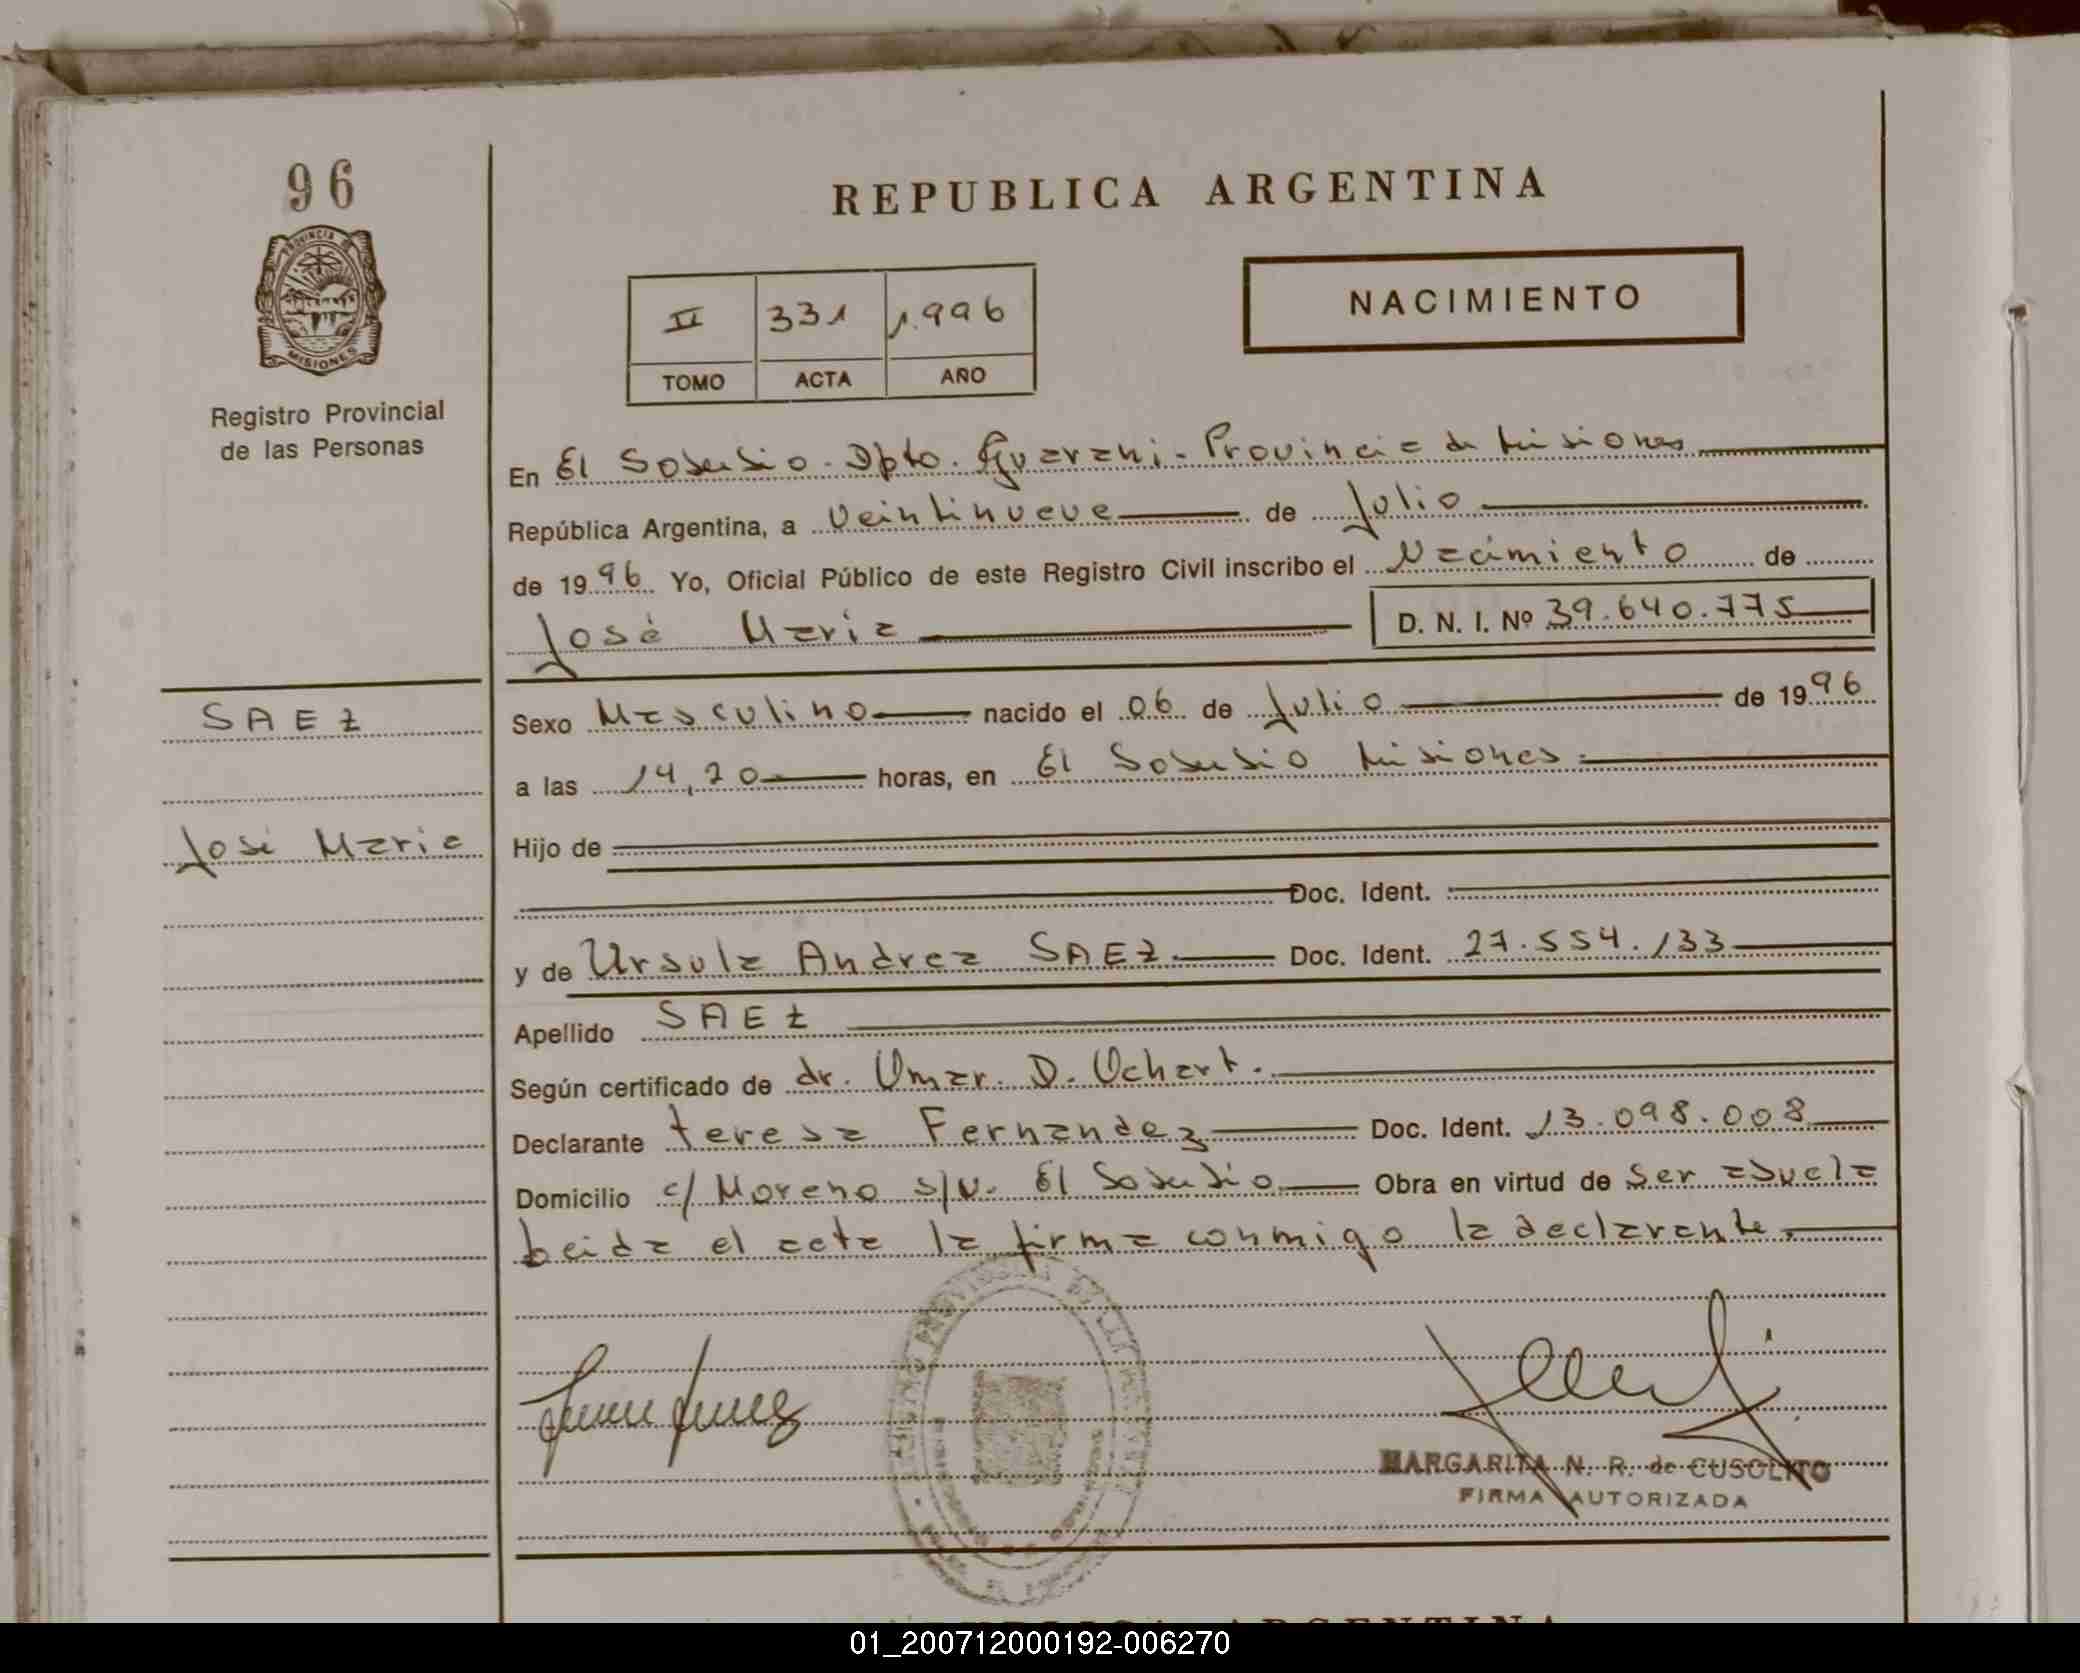 96
REPUBLICA ARGENTINA
PROVINCIA DE
MISIONES
Registro Provincial
de las Personas
II 331 1.996
TOMO ACTA AÑO
NACIMIENTO
En El Soberbio - Dpto. Guarani - Provincia de Misiones
República Argentina, a Veintinueve de Julio
de 1996 Yo, Oficial Público de este Registro Civil inscribo el Nacimiento de
José Maria D. N. I. Nº 39.640.775
SAEZ
José Maria
Sexo Masculino nacido el 06 de Julio de 1996
a las 14,20 horas, en El Soberbio Misiones
Hijo de
Doc. Ident.
y de Ursula Andrea SAEZ Doc. Ident. 27.554.133
Apellido SAEZ
Según certificado de dr. Omar. D. Ochart.
Declarante teresa Fernandez Doc. Ident. 13.098.008
Domicilio c/ Moreno s/N. El Soberbio Obra en virtud de ser abuela
Leida el acta la firma conmigo la declarante.
MARGARITA N. R. de CUSOLITO
FIRMA AUTORIZADA
REPUBLICA ARGENTINA
01_200712000192-006270